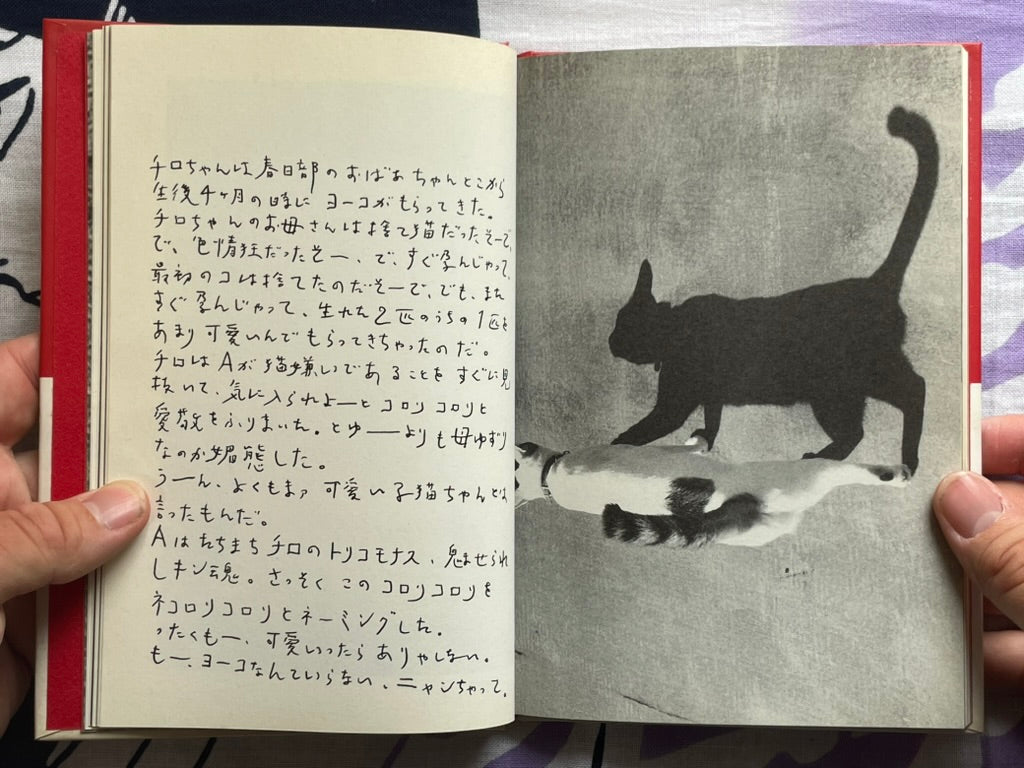 チロちゃんは春日部のおばあちゃんとこから
生後4ヶ月の時に ヨーコがもらってきた。
チロちゃんのお母さんは捨て猫だったそーで、
で、色情狂だったそー、で、すぐ孕んじゃって、
最初のコは捨てたのだそーで、でも、また
すぐ孕んじゃって、生れた2匹のうちの1匹を
あまり可愛いんでもらってきちゃったのだ。
チロはAが猫嫌いであることをすぐに見
抜いて、気に入られよーとコロリコロリと
愛敬をふりまいた。とゆーーよりも母ゆずり
なのか媚態した。
うーん、よくもまァ可愛い子猫ちゃんとは
言ったもんだ。
Aはたちまちチロのトリコモナス、魅せられ
しキン魂。さっそくこのコロリコロリを
ネコロリコロリとネーミングした。
ったくもー、可愛いったらありゃしない。
もー、ヨーコなんていらない、ニャンちゃって。